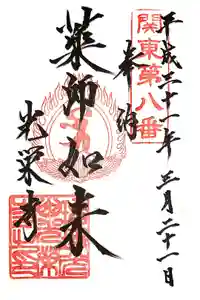 平成二十一年 三月二十一日
関東第八番
奉
薬師如来
光栄寺